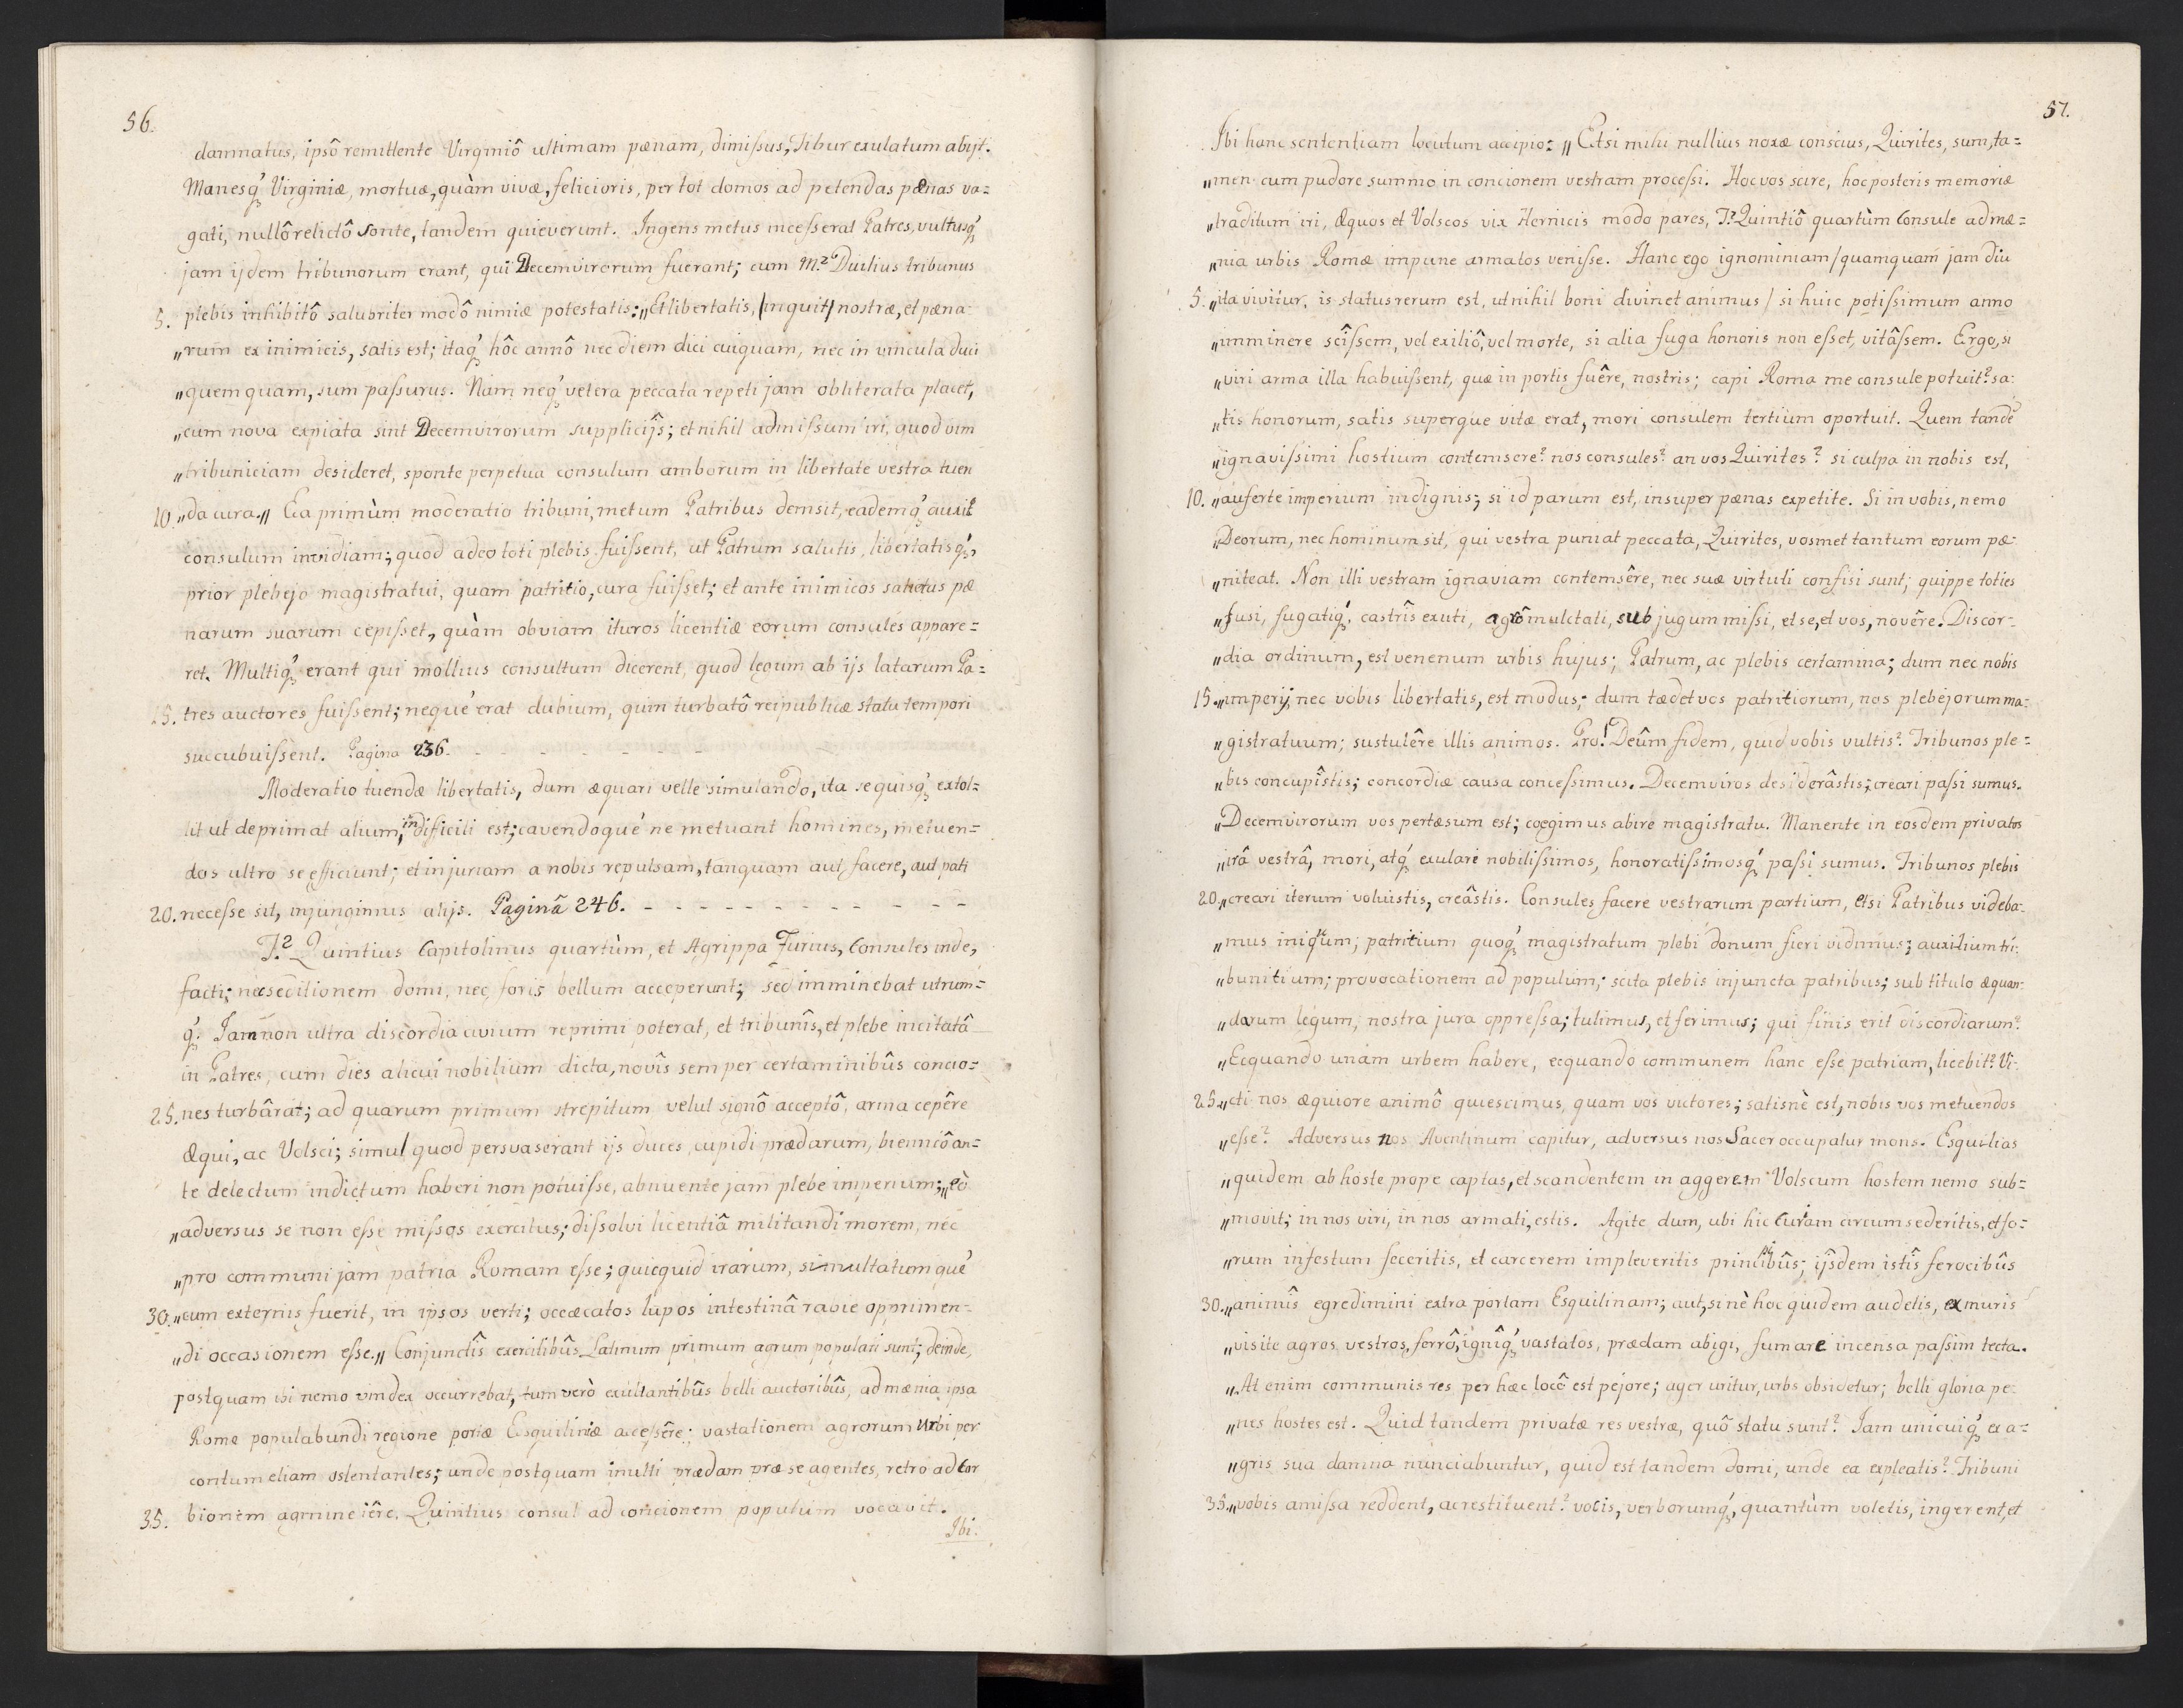 56.
damnatus, ipsô remittente Virginiô ultimam pænam, dimiſsus, Tibur exulatum abijt.
Manesq́ꝫ Virginiæ, mortuæ, quàm vivæ, felicioris, per tot domos ad petendas pænas va=
gati, nullô relictô sonte, tandem quieverunt. Ingens metus inceſserat Patres, vultusq́ꝫ
jam ijdem tribunorum erant, qui Decemvirorum fuerant; cum M.² Duilius tribunus
5. plebis inhibitô salubriter modô nimiæ potestatis: „Et libertatis, /inquit/ nostræ, et pæna-
„rum ex inimicis, satis est; itaq́ꝫ hôc annô nec diem dici cuiquam, nec in vincula duci
„quemquam, sum paſsurus. Nam neq́ꝫ vetera peccata repeti jam obliterata placet,
„cum nova expiata sint Decemvirorum supplicijs; et nihil admiſsum iri, quod vim
„tribuniciam desideret, sponte perpetua consulum amborum in libertate vestra tuen
10. „da cura.„ Ea primùm moderatio tribuni, metum Patribus demsit, eademq́ꝫ auxit
consulum invidiam; quod adeo toti plebis fuiſsent, ut Patrum salutis, libertatisq́ꝫ,
prior plebejo magistratui, quam patritio, cura fuiſset; et ante inimicos satietas pæ
narum suarum cepiſset, quàm obviam ituros licentiæ eorum consules appare=
ret. Multiq́ꝫ erant qui mollius consultum dicerent, quod legum ab ijs latarum Pa=
15. tres auctores fuiſsent; neque erat dubium, quin turbatô reipublicæ statu tempori
succubuiſsent. Pagina 236. - - - - - - - -
Moderatio tuendæ libertatis, dum æquari velle simulando, ita se quisq́ꝫ extol=
lit ut deprimat alium, in difficili est; cavendoque ne metuant homines, metuen=
dos ultro se efficiunt; et injuriam a nobis repulsam, tanquam aut facere, aut pati
20. neceſse sit, injungimus alijs. Paginâ 246. - - - - - - - - - - - - -
T.² Quintius Capitolinus quartùm, et Agrippa Furius, Consules inde,
facti; nec seditionem domi, nec foris bellum acceperunt; sed imminebat utrum=
q́ꝫ. Jam non ultra discordia civium reprimi poterat, et tribunîs, et plebe incitatâ
in Patres, cum dies alicui nobilium dicta, novîs semper certaminibûs concio=
25. nes turbârat; ad quarum primum strepitum velut signô acceptô, arma cepêre
Æqui, ac Volsci; simul quod persvaserant ijs duces, cupidi prædarum, bienniô an=
te delectum indictum haberi non potuiſse, abnuente jam plebe imperium; „eò
„adversus se non eſse miſsos exercitus; diſsolvi licentiâ militandi morem, nec
„pro communi jam patria Romam eſse; quicquid irarum, simultatumque
30. „cum externis fuerit, in ipsos verti; occæcatos lupos intestinâ rabie opprimen-
„di occasionem eſse.„ Conjunctîs exercitibûs Latinum primum agrum populati sunt; deinde,
postquam ibi nemo vindex occurrebat, tum verò exultantibûs belli auctoribûs, ad mænia ipsa
Romæ populabundi regione portæ Esquiliniæ acceſsêre; vastationem agrorum Urbi per
contumeliam ostentantes; unde postquam inulti prædam præ se agentes, retro ad Cor
35. bionem agmine iêre. Quintius consul ad concionem populum vocavit.
Ibi.
57.
Ibi hanc sententiam locutum accipio: „Etsi mihi nullius noxæ conscius, Quirites, sum, ta=
„men cum pudore summo in concionem vestram proceſsi. Hoc vos scire, hoc posteris memoriæ
„traditum iri, Æquos et Volscos vix Hernicis modo pares, T.² Quintiô quartùm Consule ad mæ=
„nia urbis Romæ impune armatos veniſse. Hanc ego ignominiam /quamquam jam diu
5. „ita vivitur, is status rerum est, ut nihil boni divinet animus/ si huic potiſsimum anno
„imminere scîſsem, vel exiliô, vel morte, si alia fuga honoris non eſset, vitâſsem. Ergo, si
„viri arma illa habuiſsent, quæ in portis fuêre, nostris; capi Roma me consule potuit? sa-
„tis honorum, satis superque vitæ erat, mori consulem tertium oportuit. Quem tandē
„ignaviſsimi hostium contemsere? nos consules? an vos Quirites? si culpa in nobis est,
10. „auferte imperium indignis; si id parum est, insuper pænas expetite. Si in vobis, nemo
„Deorum, nec hominum sit, qui vestra puniat peccata, Quirites, vosmet tantum eorum pæ-
„niteat. Non illi vestram ignaviam contemsêre, nec suæ virtuti confisi sunt; quippe toties
„fusi, fugatiq́ꝫ, castrîs exuti, agrô mulctati, sub jugum miſsi, et se, et vos, novêre. Discor-
„dia ordinum, est venenum urbis hujus; Patrum, ac plebis certamina; dum nec nobis
15. „imperij, nec vobis libertatis, est modus; dum tædet vos patritiorum, nos plebejorum ma-
„gistratuum; sustulêre illis animos. Pro! Deûm fidem, quid vobis vultis? Tribunos ple=
„bis concupîstis; concordiæ causa conceſsimus. Decemviros desiderâstis; creari paſsi sumus.
„Decemvirorum vos pertæsum est; coegimus abire magistratu. Manente in eosdem privatos
„irâ vestrâ, mori, atq́ꝫ exulare nobiliſsimos, honoratiſsimosq́ꝫ paſsi sumus. Tribunos plebis
20. „creari iterum voluistis, creâstis. Consules facere vestrarum partium, etsi Patribus videba-
„mus iniquum; patritium quoq́ꝫ magistratum plebi donum fieri vidimus; auxilium tri-
„bunitium; provocationem ad populum; scita plebis injuncta patribus; sub titulo æquan-
„darum legum, nostra jura oppreſsa; tulimus, et ferimus; qui finis erit discordiarum?
„Ecquando unam urbem habere, ecquando communem hanc eſse patriam, licebit? Vi-
25. „cti nos æquiore animô quiescimus, quam vos victores; satisnè est, nobis vos metuendos
„eſse? Adversus nos Aventinum capitur, adversus nos Sacer occupatur mons. Esquilias
„quidem ab hoste prope captas, et scandentem in aggerem Volscum hostem nemo sub=
„movit; in nos viri, in nos armati, estis. Agite dum, ubi hic Curiam circumsederitis, et fo-
„rum infestum feceritis, et carcerem impleveritis principibûs; ijsdem istîs ferocibûs
30. „animîs egredimini extra portam Esquilinam; aut, si nè hoc quidem audetis, ex muris
„visite agros vestros, ferrô, ignîq́ꝫ vastatos, prædam abigi, fumare incensa paſsim tecta.
„At enim communis res per hæc locô est pejore; ager uritur, urbs obsidetur; belli gloria pe-
„nes hostes est. Quid tandem privatæ res vestræ, quô statu sunt? Jam unicuiq́ꝫ ex a=
„gris sua damna nunciabuntur, quid est tandem domi, unde ea expleatis? Tribuni
35. „vobis amiſsa reddent, ac restituent? vocis, verborumq́ꝫ, quantùm voletis, ingerent, et